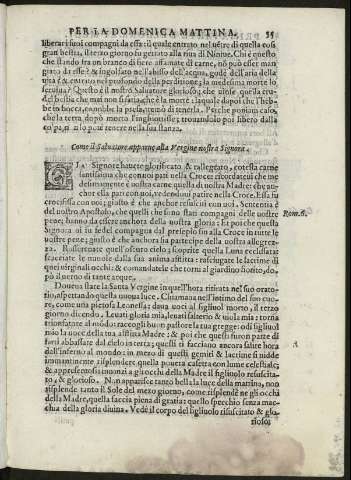 PER LA DOMENICA MATTINA. 35
liberar i suoi compagni da essa: il quale entrato nel uẽtre di quella così
gran bestia, il terzo giorno fu gettato alla riua di Niniue. Chi è questo
che stando fra un branco di fiere affamate di carne, nõ può esser man
giato da esse? & ingolfato nell'abisso dell'acqua, gode dell'aria della
uita? & entrato nel profondo della perditione; la medesima morte lo
serue? Questo è il nostro Saluatore glorioso; che uccise quella cru-
del bestia che mai non si satia: che è la morte: la quale dapoi che l'heb-
be in bocca, conobbe la preda, tremò di tenerla. Perche
che la terra, dopò morto l'inghiottisse; trouandolo poi libero dalla
colpa, nõ lo potè tenere nella sua stanza.
Come il Saluatore apparue alla Vergine nostra Signora.
GIA Signore hauete glorificato & rallegrato, cotesta carne
santissima che con uoi patì nella Croce: ricordateui che me
desimamente è uostra carne quella di uostra Madre: che an-
chor essa patì con uoi, uedendoui patire nella Croce. Essa fu
crocifissa con uoi; giusto è che anchor resusciti con uoi. Sententia è
del uostro Apostolo, che quelli che sono stati compagni delle uostre
pene; hanno da essere anchora della uostra gloria: & poi che questa
Signora ui fu fedel compagna dal presepio sin alla Croce in tutte le
uostre pene; giusto è che anchora sia partecipe della uostra allegrez-
za. Rasserenate quell'oscuro cielo; scoprite quella Luna ecclissata:
scacciate le nuuole dalla sua anima afflitta: rasciugate le lacrime di
quei uirginali occhi: & comandatele che torni al giardino fiorito, do-
pò il uerno di tante acque.
Rom. 6.
Doueua stare la Santa Vergine in quell'hora ritirata nel suo orato-
rio, aspettando questa nuoua luce. Chiamaua nell'intimo del suo cuo-
re, come una pietosa Leonessa; daua uoci al figliuol morto, il terzo
giorno dicendo. Leuati gloria mia, leuati salterio & uiola mia: torna
trionfatore al mõdo: raccogli buon pastore la tua gregge: odi figliuol
mio la uoce della tua afflitta Madre: & poi che questi furon parte di
farti abbassare dal cielo in terra; questi ti facciano ancora salire hora
dall'inferno al mondo: in mezo di questi gemiti & lacrime si uidde
immantinente risplendere quella pouera casetta con lume celestiale;
& appresentossi innanzi a gli occhi della Madre il figliuolo resuscita-
to, & glorioso. Non apparisce tanto bella la luce della mattina, non
risplende tanto il Sole del mezo giorno, come risplendè ne gli occhi
della Madre, quella faccia piena di gratia: quello specchio senza mac-
chia della gloria diuina. Vede il corpo del figliuolo risuscitato & glo-
rioso: